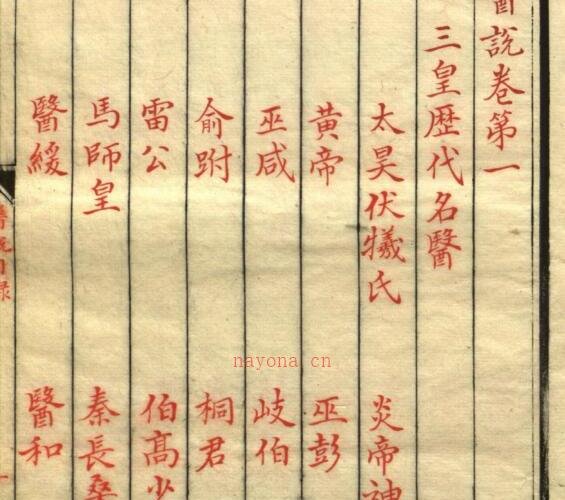 醫說卷第一
三皇歷代名醫
太昊伏犧氏 炎帝神
黄帝 巫彭
巫咸 岐伯
俞跗 桐君
雷公 伯髙少
馬師皇 秦長桑
醫緩 醫和
醫說目録
nayona.cn